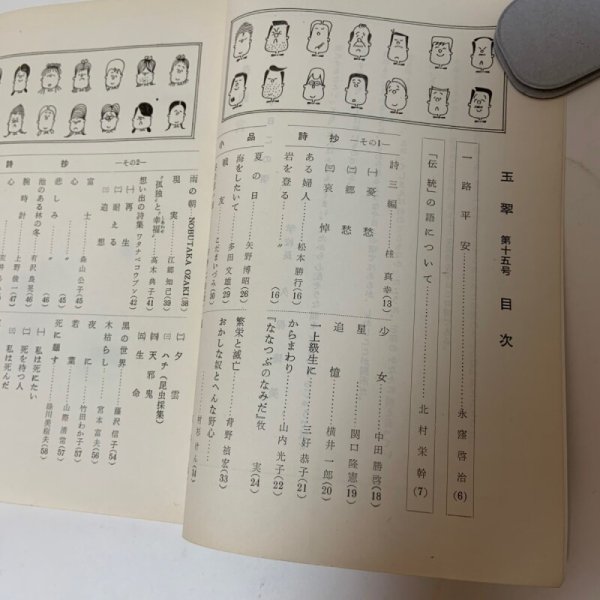 玉翠 第十五号 目次
一路平安……永窪啓治(6)
「伝統の語について」……北村栄幹(7)
詩抄 ―その1―
詩三編……桂真幸(13)
(一)憂愁
(二)郷愁
(三)哀悼
ある婦人……松本勝行(16)
岩を登る……〃(16)
少女……中田勝啓(18)
星……関口隆憲(19)
追憶……横井一郎(20)
一上級生に……三好恭子(21)
からまわり……山内光子(22)
「ななつぶのなみだ」牧実(24)
小品
夏の日……矢野博昭(26)
海をしたいて……多田文雄(29)
繁栄と滅亡……背野禎宏(33)
おかしな奴とへんな野心……
詩抄 ―その2―
雨の朝 NOBUTAKA OZAKI(38)
現実……江郷知己(39)
“孤独”と“幸福”……高木典子(41)
思い出の詩集 ワタナベコウブン(42)
(一)再生
(二)耐える
(三)追想
富士……森山公子(45)
悲しみ……〃(45)
心……〃(46)
池のある林の冬……有沢良晃(46)
腕時計……上野俊一(47)
心
(二)夕雲
(三)ハチ(昆虫採集)
(四)天邪鬼
(五)生命
黒の世界……藤沢信子(54)
木枯らし……宮本富夫(56)
夜に……竹田わか子(56)
若葉……山際清常(57)
死に瀕す……緑川美樹夫(58)
(一)私は死にたい
(二)死を待つ人
私は死んだ